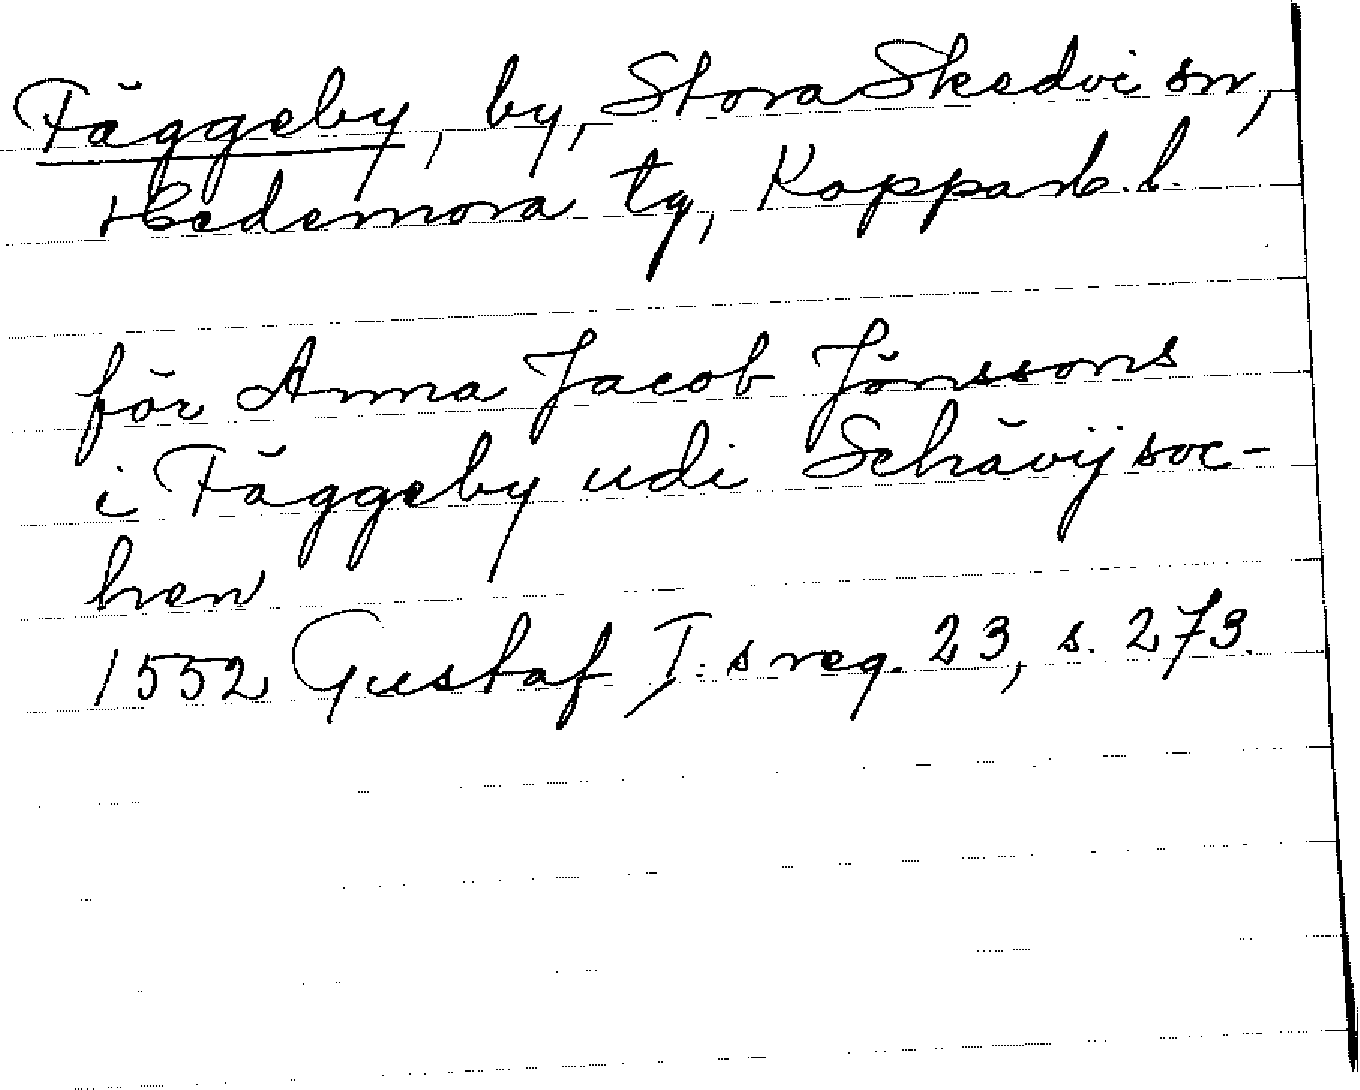 Fäggeby, by, Stora Skedvi sn,
Hedemora tg, Kopparb. l.
för Anna Jacob Jönssons
i Fäggeby udi Schävij soc-
hen
1552 Gustaf I:s reg. 23, s. 273.